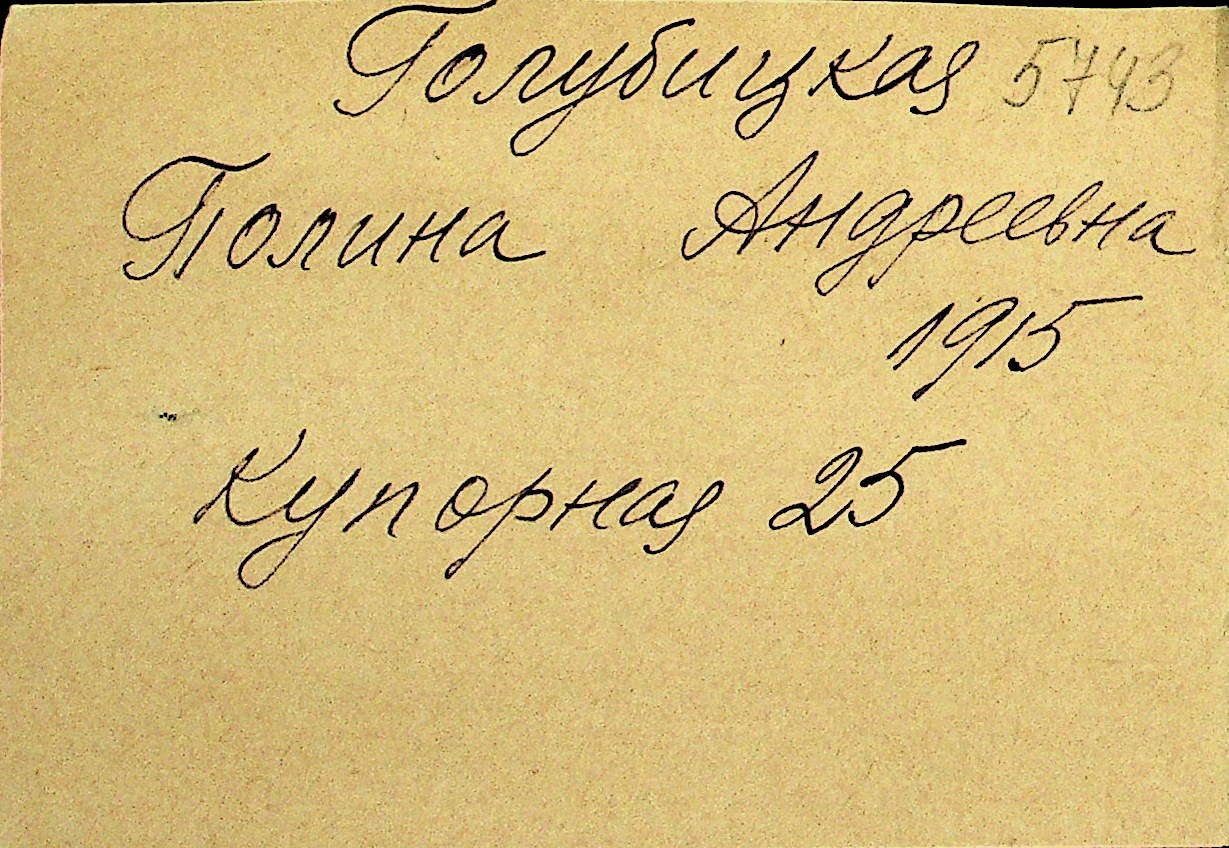 Голубицкая 5743
Полина Андреевна
1915
Купорная 25